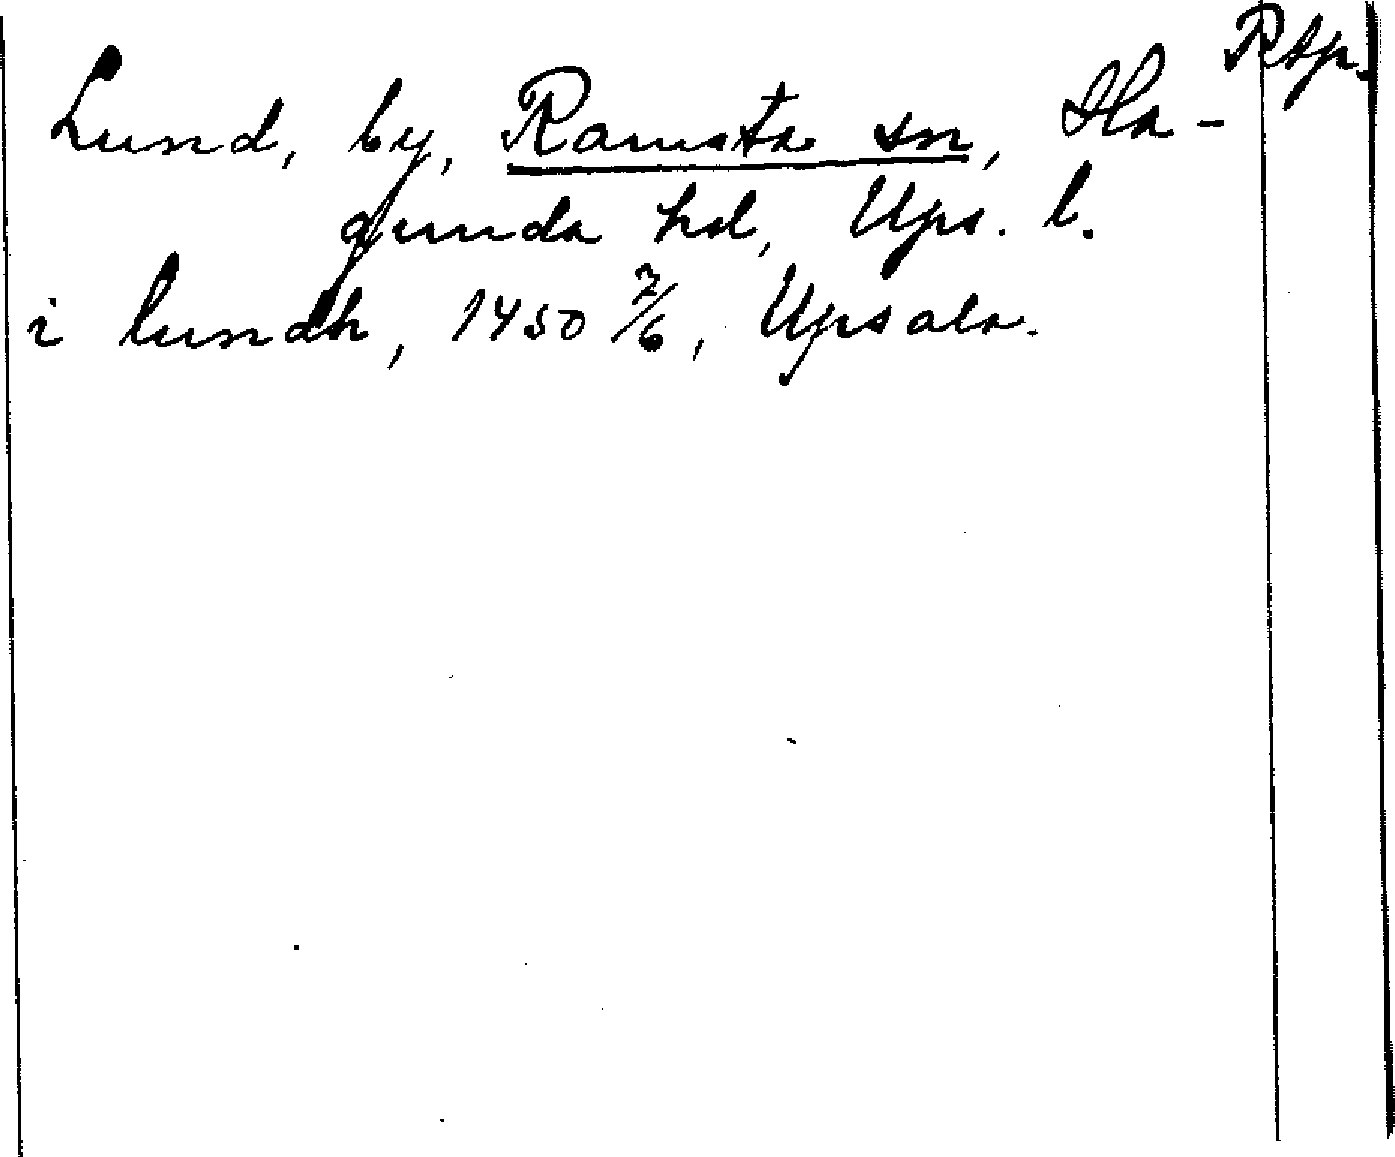 Rsp.
Lund, by, Ramsta sn, Ha-
gunda hd, Ups. l.
i lundh, 1450 7/6, Upsala.